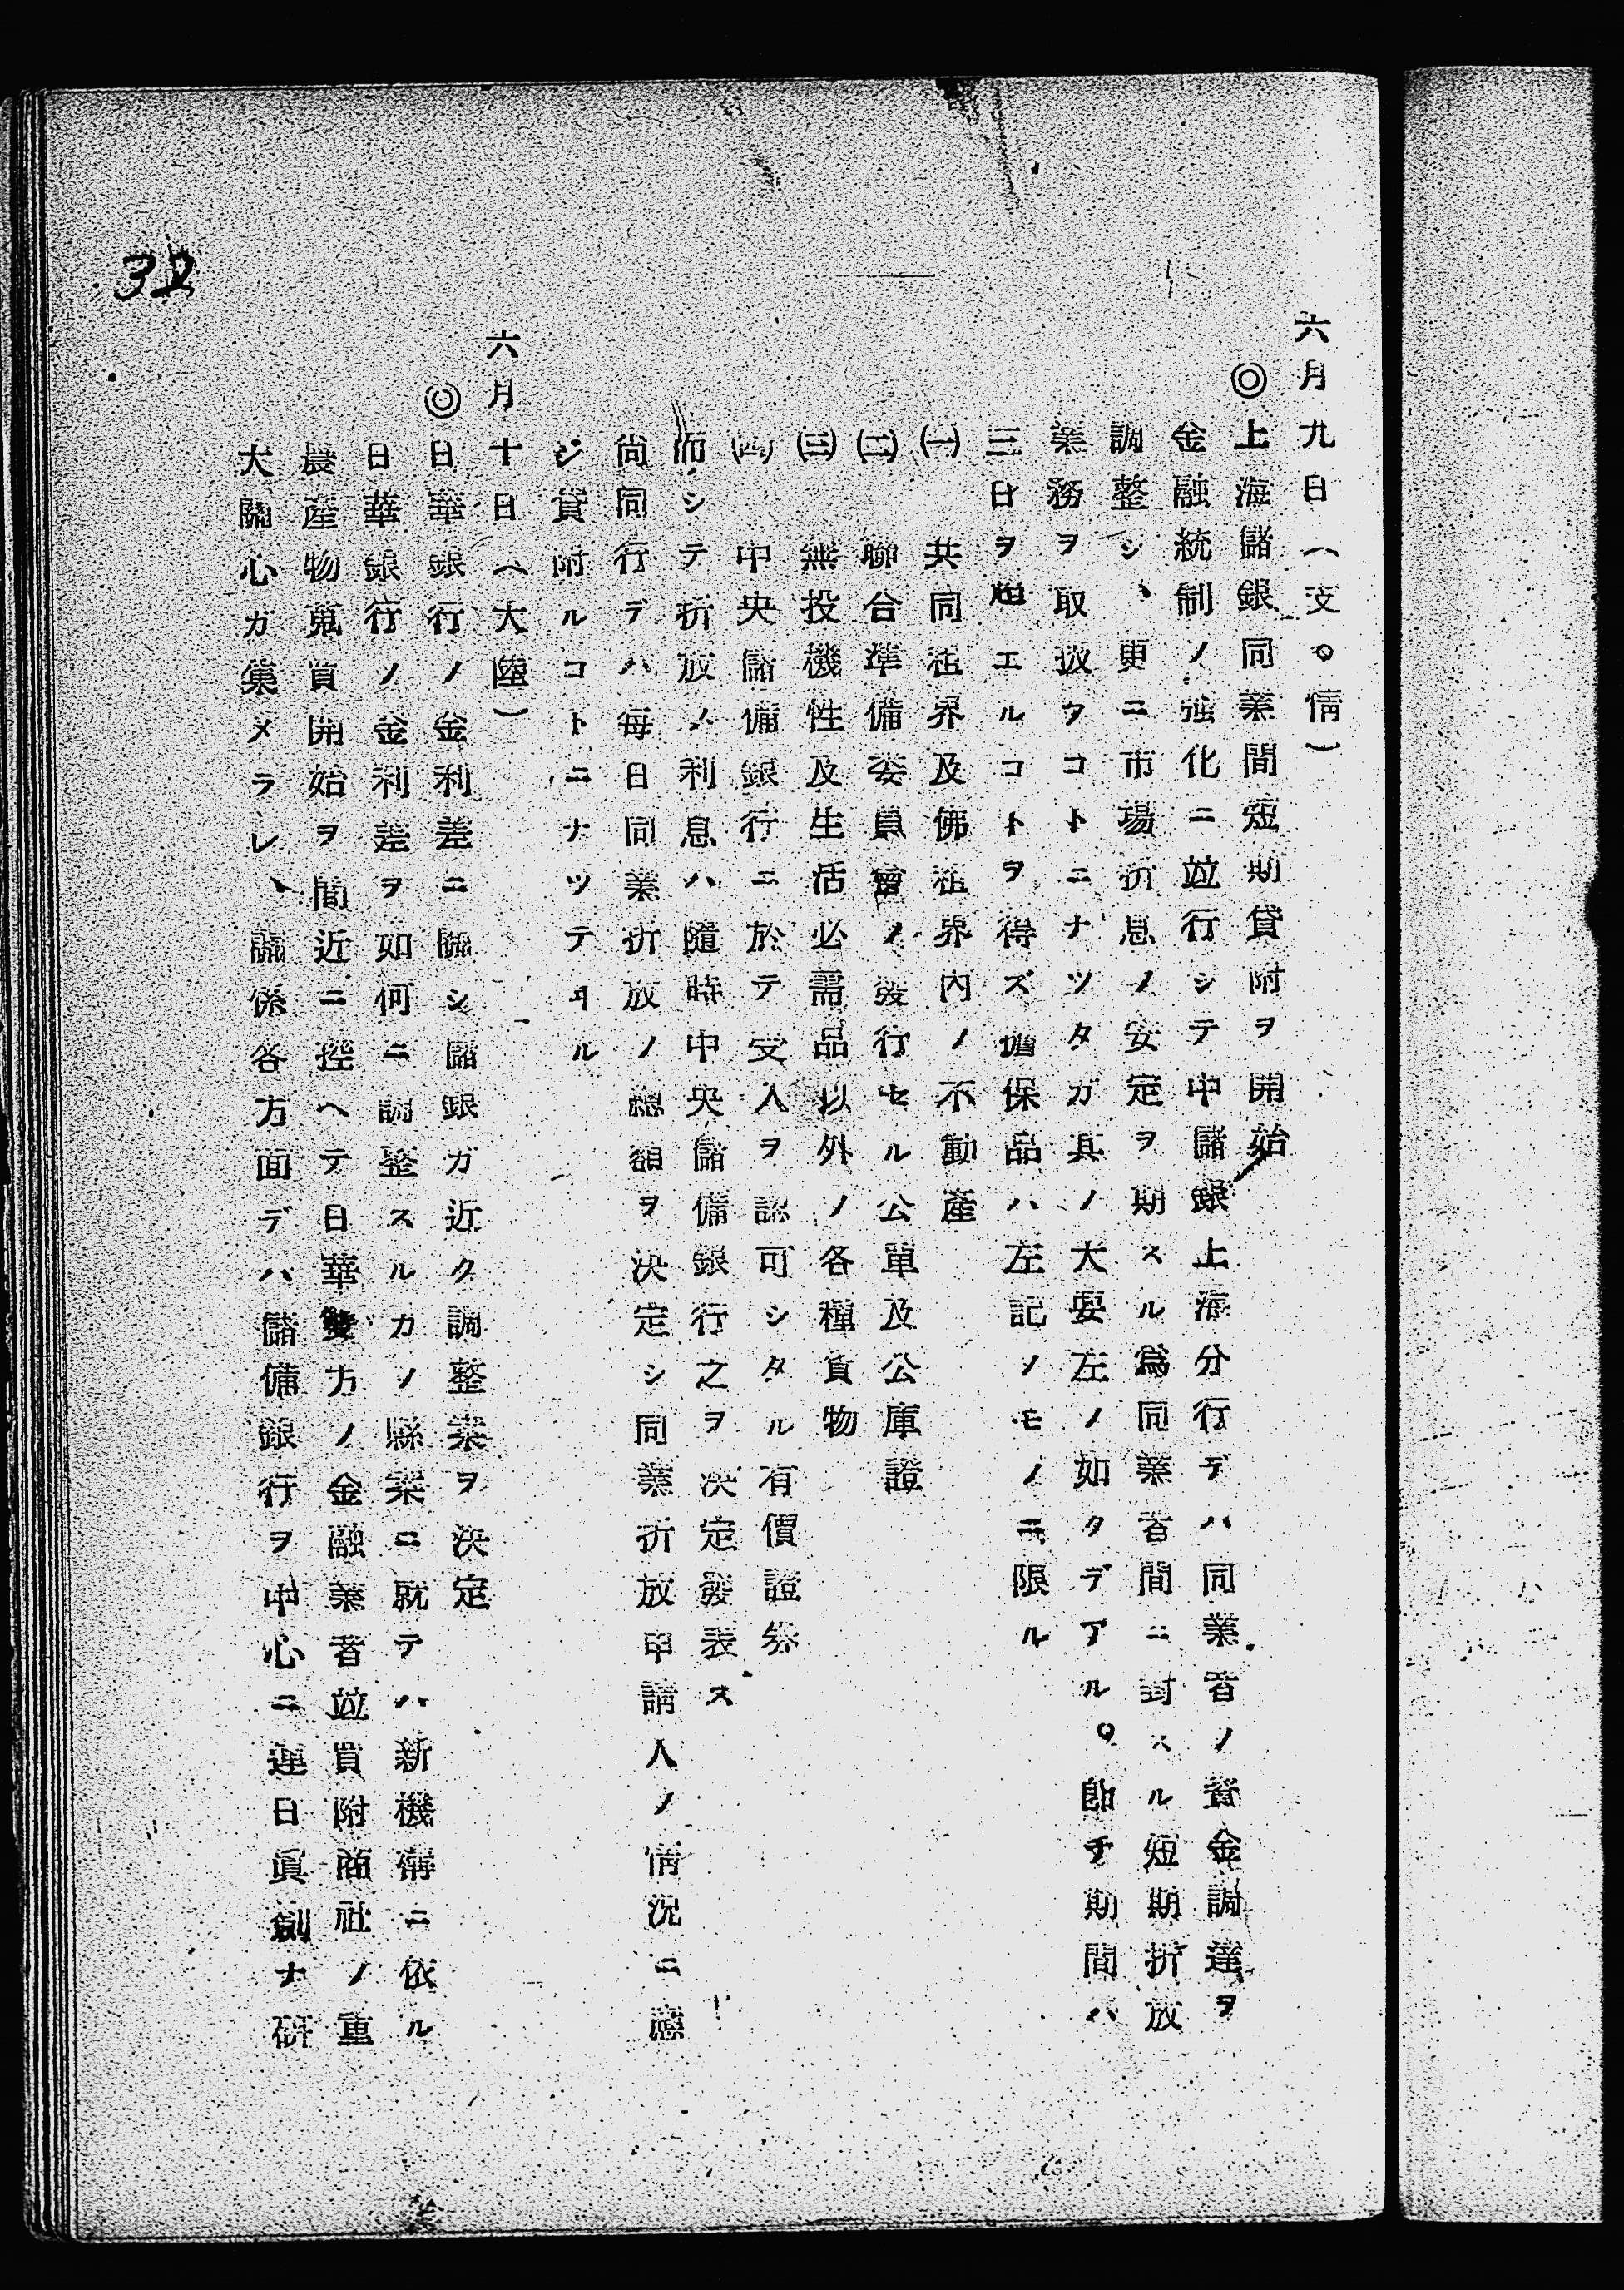 六月九日（支。情）
◎上海儲銀同業間短期貸附ヲ開始
金融統制ノ强化ニ竝行シテ中儲銀上海分行デハ同業者ノ資金調達ヲ
調整シ、更ニ市場折息ノ安定ヲ期スル爲同業者間ニ對スル短期折放
業務ヲ取扱フコトニナツタガ其ノ大要左ノ如クデアル。卽チ期間ハ
三日ヲ超エルコトヲ得ズ擔保品ハ左記ノモノニ限ル
㈠　共同租界及佛租界內ノ不動產
㈡　聯合準備委員會ノ發行セル公單及公庫證
㈢　無投機性及生活必需品以外ノ各種貨物
㈣　中央儲備銀行ニ於テ受入ヲ認可シタル有價證券
而シテ折放ノ利息ハ隨時中央儲備銀行之ヲ決定發表ス
尙同行デハ每日同業折放ノ總額ヲ決定シ同業折放申請人ノ情況ニ應
ジ貸附ルコトニナツテヰル
六月十日（大陸）
◎日華銀行ノ金利差ニ關シ儲銀ガ近ク調整案ヲ決定
日華銀行ノ金利差ヲ如何ニ調整スルカノ縣案ニ就テハ新機構ニ依ル
農產物蒐買開始ヲ間近ニ控ヘテ日華雙方ノ金融業者竝買附商社ノ重
大關心ガ集メラレ、關係各方面デハ儲備銀行ヲ中心ニ連日眞劍ナ硏
32